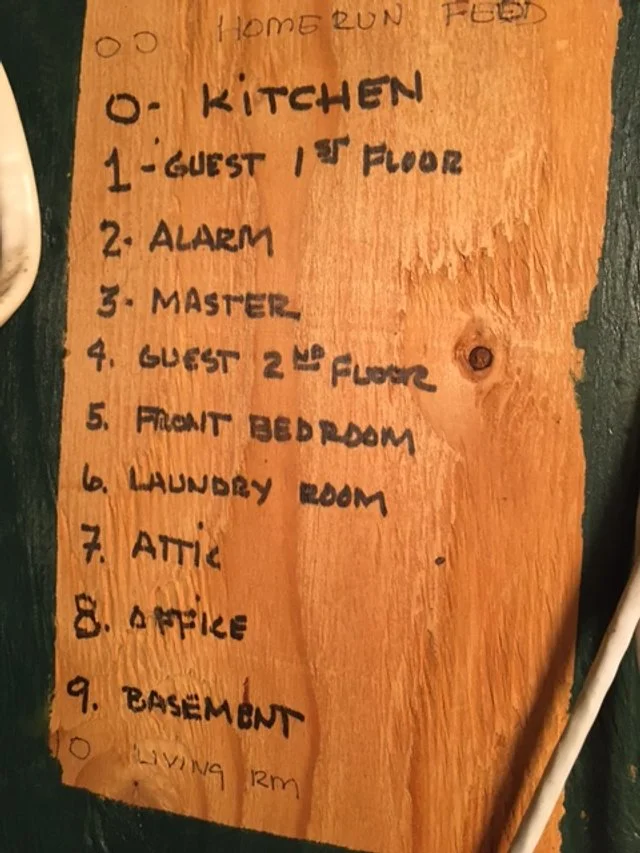 00 HOMERUN FEED
0- KiTCHEN
1-GUEST 1ST FLOOR
2- ALARM
3- MASTER
4. GUEST 2ND FLOOR
5. FRONT BEDROOM
6. LAUNDRY ROOM
7. ATTiC
8. OFFICE
9. BASEMENT
10 LIVING RM